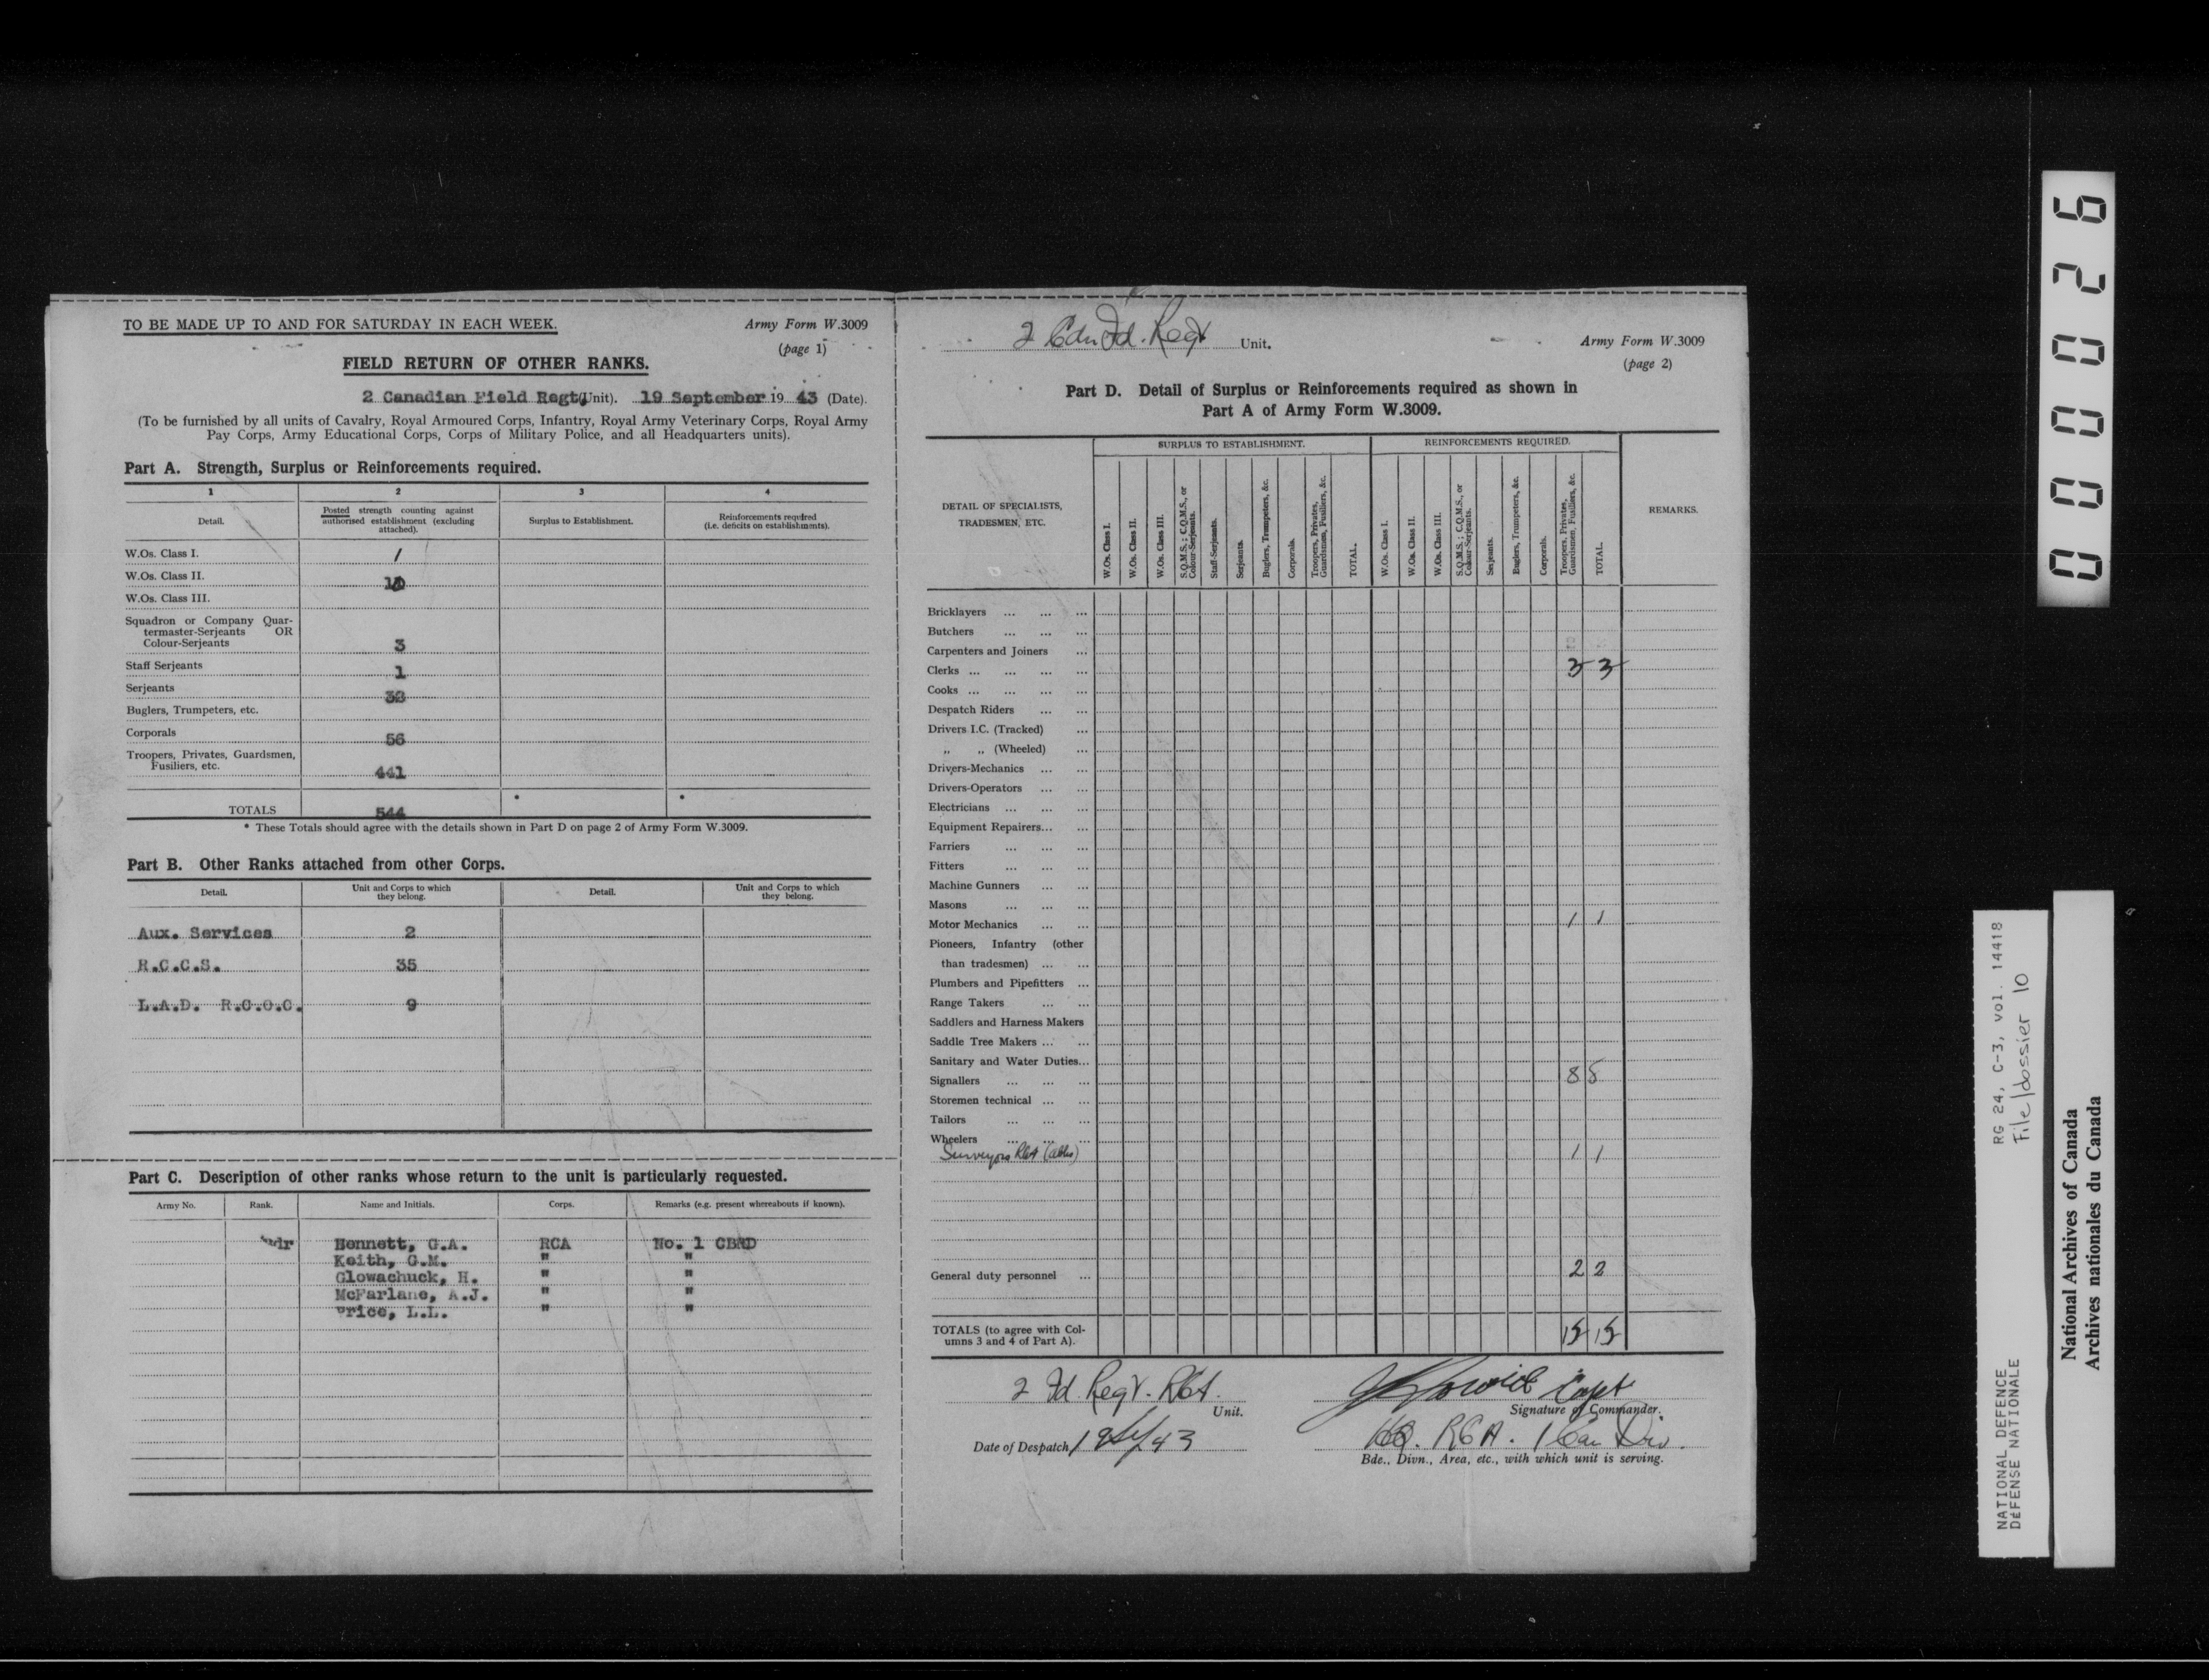 TO BE MADE UP TO AND FOR SATURDAY IN EACH WEEK.
Army Form W.3009
(page 1)
FIELD RETURN OF OTHER RANKS.
2 Canadian Field Regt (Unit). 19 September 19 43 (Date).
(To be furnished by all units of Cavalry, Royal Armoured Corps, Infantry, Royal Army Veterinary Corps, Royal Army
Pay Corps, Army Educational Corps, Corps of Military Police, and all Headquarters units).
Part A. Strength, Surplus or Reinforcements required.
1 2 3 4
Detail. Posted strength counting against authorised establishment (excluding attached). Surplus to Establishment. Reinforcements required (i.e. deficits on establishments).
W.Os. Class I. 1
W.Os. Class II.
W.Os. Class III.
Squadron or Company Quar-
termaster-Serjeants OR
Colour-Serjeants 3
Staff Serjeants 1
Serjeants
Buglers, Trumpeters, etc.
Corporals 56
Troopers, Privates, Guardsmen,
Fusiliers, etc. 441
TOTALS 544 * *
* These Totals should agree with the details shown in Part D on page 2 of Army Form W.3009.
Part B. Other Ranks attached from other Corps.
Detail. Unit and Corps to which they belong. Detail. Unit and Corps to which they belong.
Aux. Services 2
R.C.C.S. 35
L.A.D. R.C.O.C. 9
Part C. Description of other ranks whose return to the unit is particularly requested.
Army No. Rank. Name and Initials. Corps. Remarks (e.g. present whereabouts if known).
Bennett, G.A. RCA No. 1 CBRD
Keith, G.M. " "
Glowachuck, H. " "
McFarlane, A.J. " "
Price, L.L. " "
2 Cdn Fd. Regt Unit.
Army Form W.3009
(page 2)
Part D. Detail of Surplus or Reinforcements required as shown in
Part A of Army Form W.3009.
DETAIL OF SPECIALISTS, TRADESMEN, ETC.
SURPLUS TO ESTABLISHMENT.
W.Os. Class I.
W.Os. Class II.
W.Os. Class III.
S.Q.M.S.; C.Q.M.S., or Colour-Serjeants.
Staff-Serjeants.
Serjeants.
Buglers, Trumpeters, &c.
Corporals.
Troopers, Privates, Guardsmen, Fusiliers, &c.
TOTAL.
REINFORCEMENTS REQUIRED.
W.Os. Class I.
W.Os. Class II.
W.Os. Class III.
S.Q.M.S.; C.Q.M.S., or Colour-Serjeants.
Serjeants.
Buglers, Trumpeters, &c.
Corporals.
Troopers, Privates, Guardsmen, Fusiliers, &c.
TOTAL.
REMARKS.
Bricklayers ... ... ...
Butchers ... ... ...
Carpenters and Joiners ...
Clerks ... ... ... ... 3 3
Cooks ... ... ... ...
Despatch Riders ... ...
Drivers I.C. (Tracked) ...
„ „ (Wheeled) ...
Drivers-Mechanics ... ...
Drivers-Operators ... ...
Electricians ... ... ...
Equipment Repairers... ...
Farriers ... ... ...
Fitters ... ... ...
Machine Gunners ... ...
Masons ... ... ...
Motor Mechanics ... ... 1 1
Pioneers, Infantry (other
than tradesmen) ... ...
Plumbers and Pipefitters ...
Range Takers ... ...
Saddlers and Harness Makers
Saddle Tree Makers ... ...
Sanitary and Water Duties...
Signallers ... ... ... 8 8
Storemen technical ... ...
Tailors ... ... ...
Wheelers ... ... ...
Surveyors RCA 1 1
General duty personnel ... 2 2
TOTALS (to agree with Col-
umns 3 and 4 of Part A). 15 15
2 Fd. Regt. RCA.
Unit.
Capt
Signature of Commander.
Date of Despatch 19 43
HQ. RCA. 1 Can Div.
Bde., Divn., Area, etc., with which unit is serving.
000026
NATIONAL DEFENCE RG 24, C-3, vol. 14418
DÉFENSE NATIONALE File/dossier 10
National Archives of Canada
Archives nationales du Canada